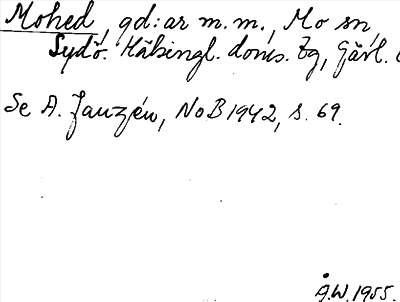 Mohed, gd: ar m.m., Mo sn,
Sydö. Hälsingl. doms. Zg, Gävl.
Se A. Janzén, NoB 1942, s. 69.
Å.W. 1955.